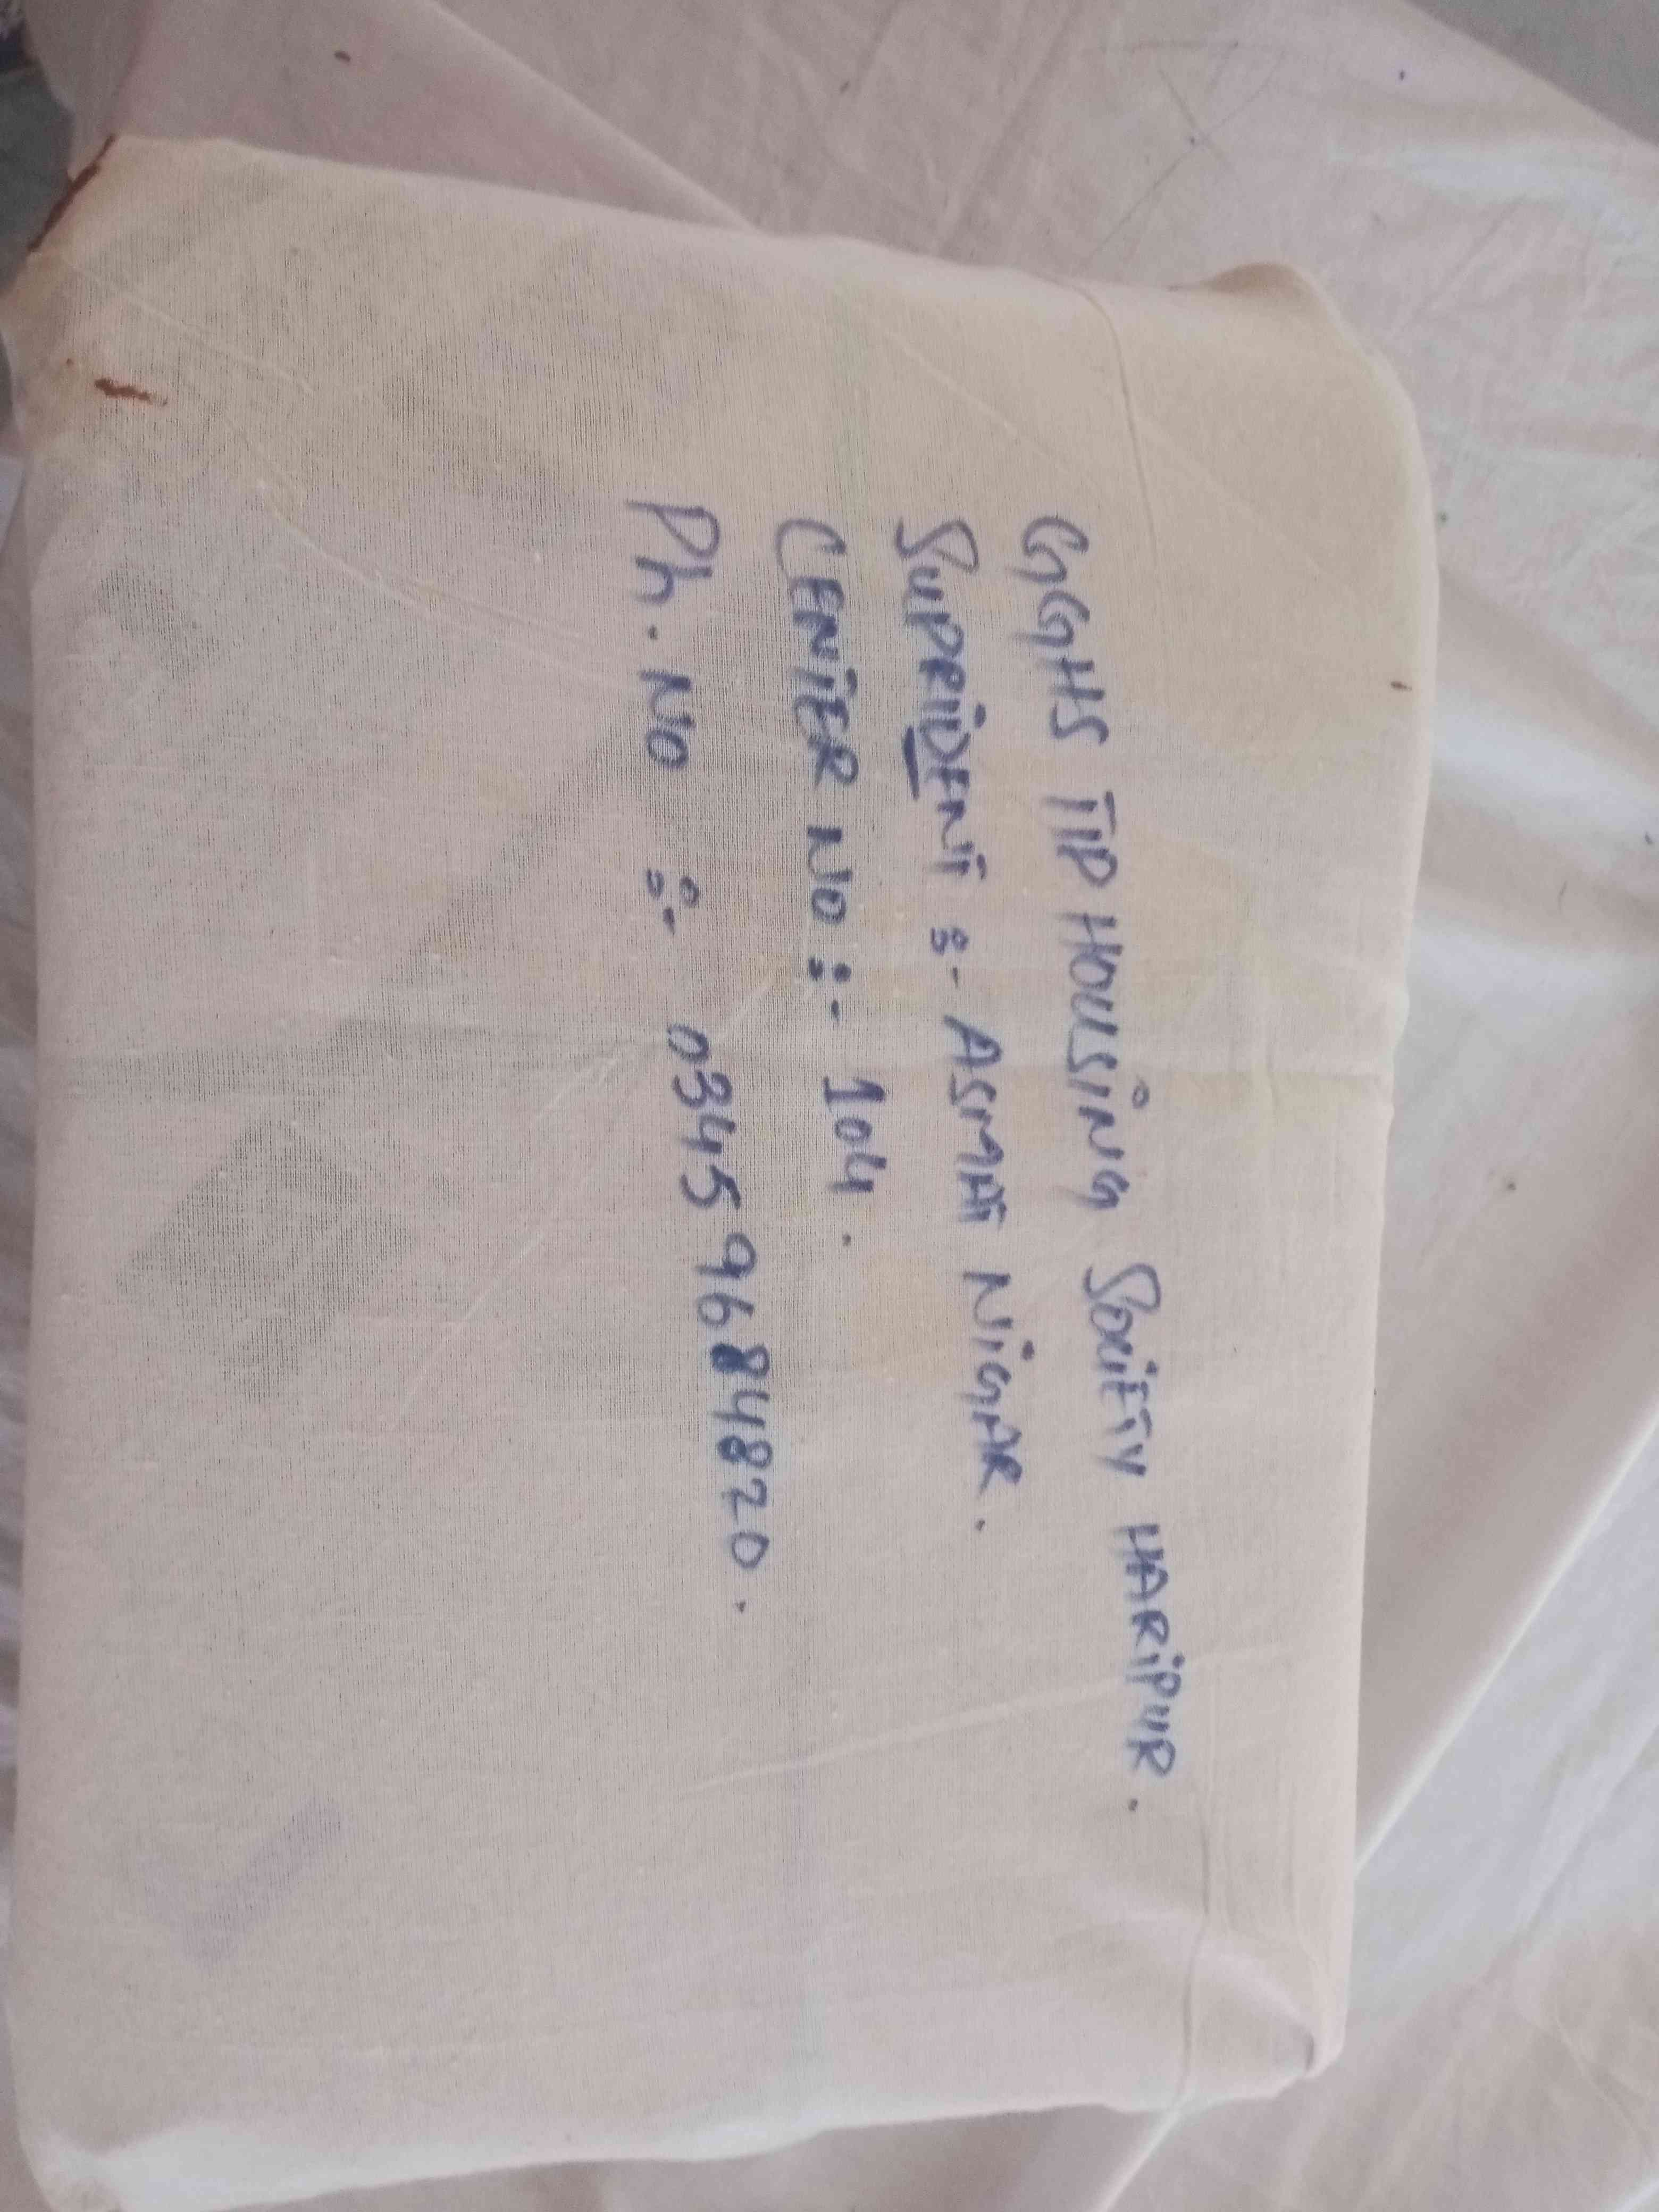 GGHS TIP HOUSING SOCIETY HARIPUR.
SUPRIDENT :- ASMAT NIGAR.
CENTER NO :- 104.
Ph. NO :- 03459684820.